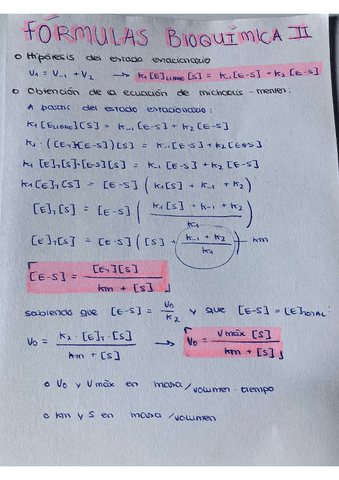 FÓRMULAS BIOQUÍMICA II
○ Hipótesis del estado estacionario
V₁ = V₋₁ + V₂ → K₁[E]LIBRE[S] = K₋₁[E-S] + K₂[E-S]
○ Obtención de la ecuación de michaelis - menten:
A partir del estado estacionario:
K₁[ELIBRE][S] = K₋₁[E-S] + K₂[E-S]
K₁·([ET]-[E-S])[S] = K₋₁[E-S] + K₂[E-S]
K₁[E]T[S]-[E-S][S] = K₋₁[E-S] + K₂[E-S]
K₁[E]T[S] = [E-S](K₁[S] + K₋₁ + K₂)
[E]T[S] = [E-S](K₁[S] + K₋₁ + K₂ / K₁)
[E]T[S] = [E-S]([S] + K₋₁ + K₂ / K₁) — km
[E-S] = [ET][S] / km + [S]
sabiendo que [E-S] = V₀ / K₂ y que [E-S] = [E]TOTAL:
V₀ = K₂·[E]T·[S] / km + [S] → V₀ = Vmáx [S] / km + [S]
○ V₀ y Vmáx en masa/volumen·tiempo
○ km y S en masa/volumen